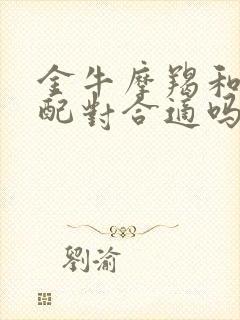 金牛摩羯和
配對合適嗎
劉渝